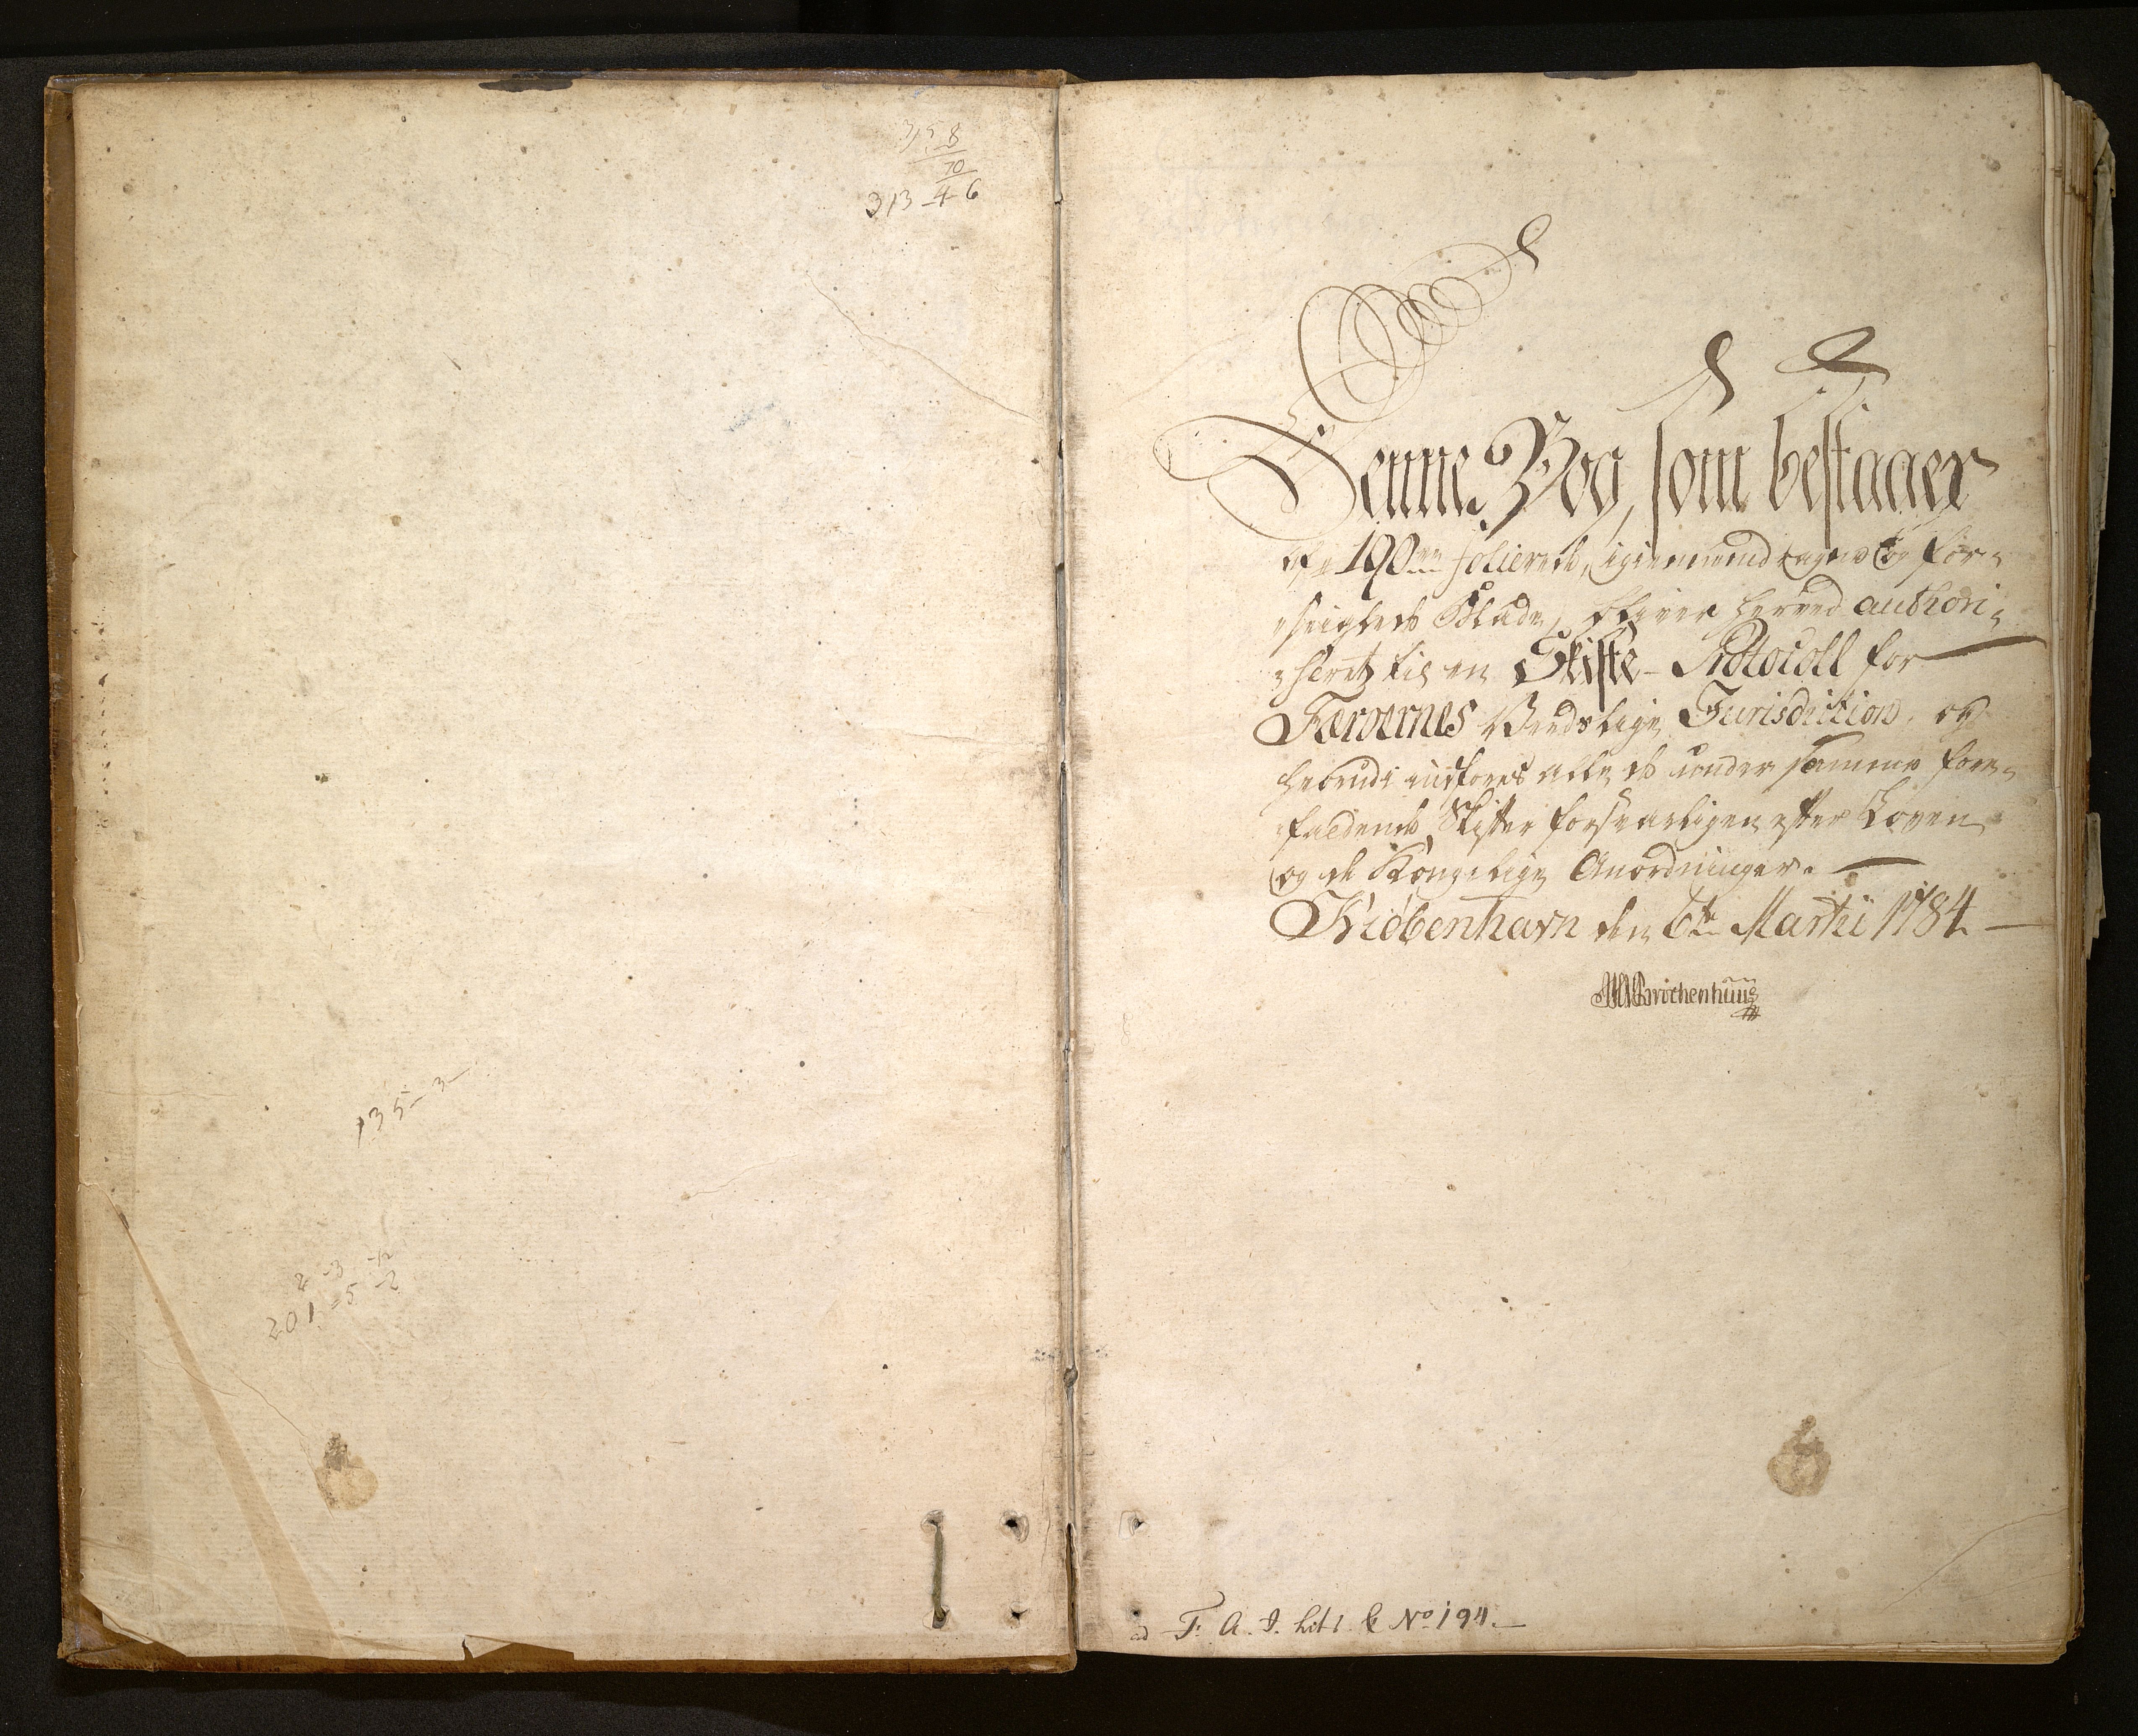 358
70
313 - 4 - 6
135 - 3
2 - 3
201 - 5 - 2
Denne Bog, som bestaaer
af 190 folierede, igiennemdragen og for-
seiglede Blade, bliver herved authori-
seret til en Skifte-Protocoll for
Færøernes Verdslige Jurisdiction, og
herudi indføres alle de under samme fore-
faldende Skifter forsvarligen efter Loven
og de Kongelige Anordninger.
Kiøbenhavn den 6te Martii 1784
ad F. A. I. Lit No 194.